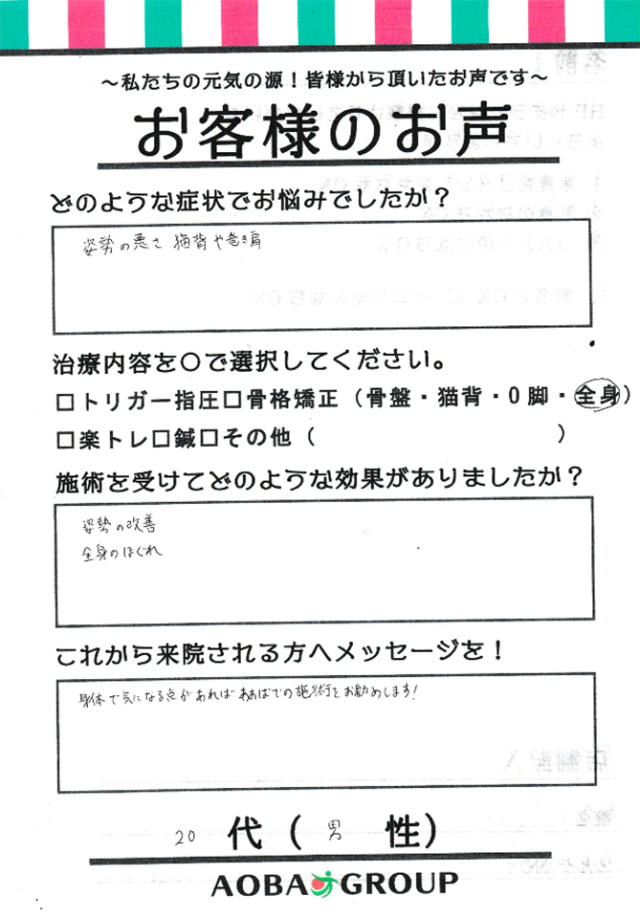 ～私たちの元気の源！皆様から頂いたお声です～
お客様のお声
どのような症状でお悩みでしたか？
姿勢の悪さ 猫背や巻き肩
治療内容を〇で選択してください。
□トリガー指圧□骨格矯正（骨盤・猫背・O脚・全身）
□楽トレ□鍼□その他（ ）
施術を受けてどのような効果がありましたか？
姿勢の改善
全身のほぐれ
これから来院される方へメッセージを！
身体で気になる点があればあおばでの施術をお勧めします！
20 代（ 男 性）
AOBA GROUP